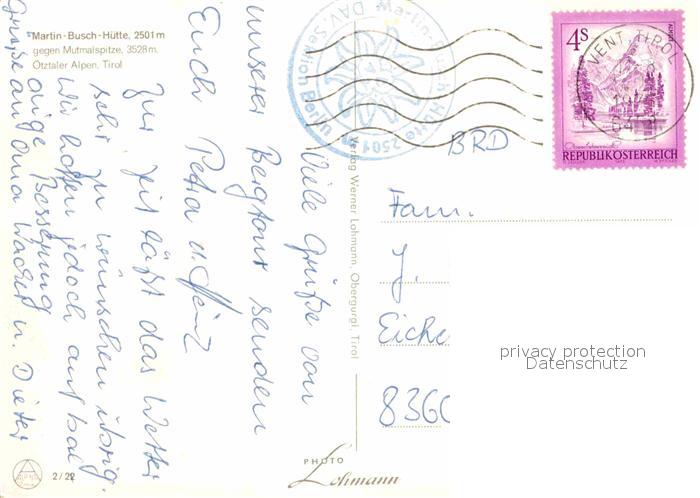 Martin-Busch-Hütte, 2501 m
gegen Mutmalspitze, 3528 m.
Ötztaler Alpen, Tirol
Viele Grüße von
unserer Bergtour senden
Euch Petra u. Heinz
Zur Zeit läßt das Wetter
sehr zu wünschen übrig.
Wir hoffen jedoch auf bal
dige Besserung
Grüße an Oma Wacker u. Dieter
DAV-Sektion Berlin
Martin-Busch Hütte 2501 m
VENT, TIROL
4 S
REPUBLIK ÖSTERREICH
BRD
Fam.
J.
Eiche
8360
privacy protection
Datenschutz
Verlag Werner Lohmann, Obergurgl, Tirol
PHOTO
Lohmann
2/22